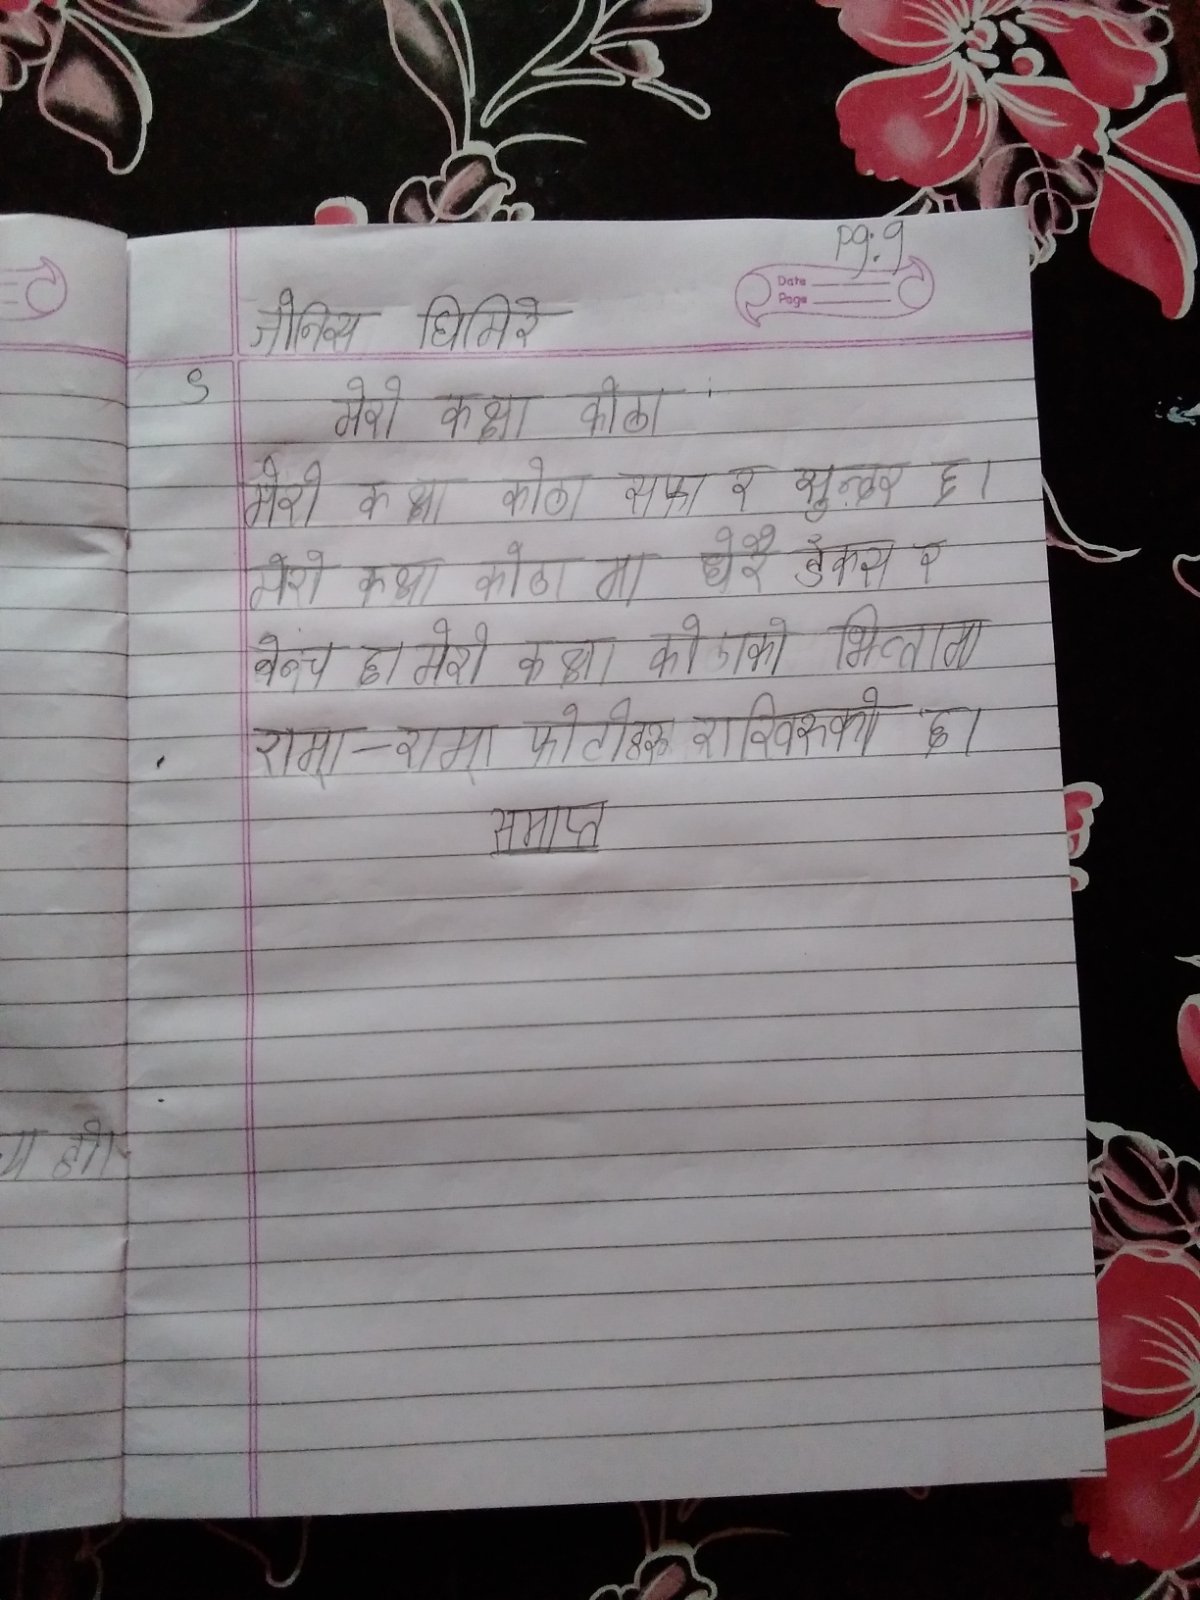 pg:9
Date
Page
जोनिस घिमिरे
९
मेरो कक्षा कोठा
मेरो कक्षा कोठा सफा र सुन्दर छ।
मेरो कक्षा कोठा मा धेरै डेक्स र
बेन्च छ। मेरो कक्षा कोठाको भित्तामा
राम्रा-राम्रा फोटोहरू राखिएको छ।
समाप्त